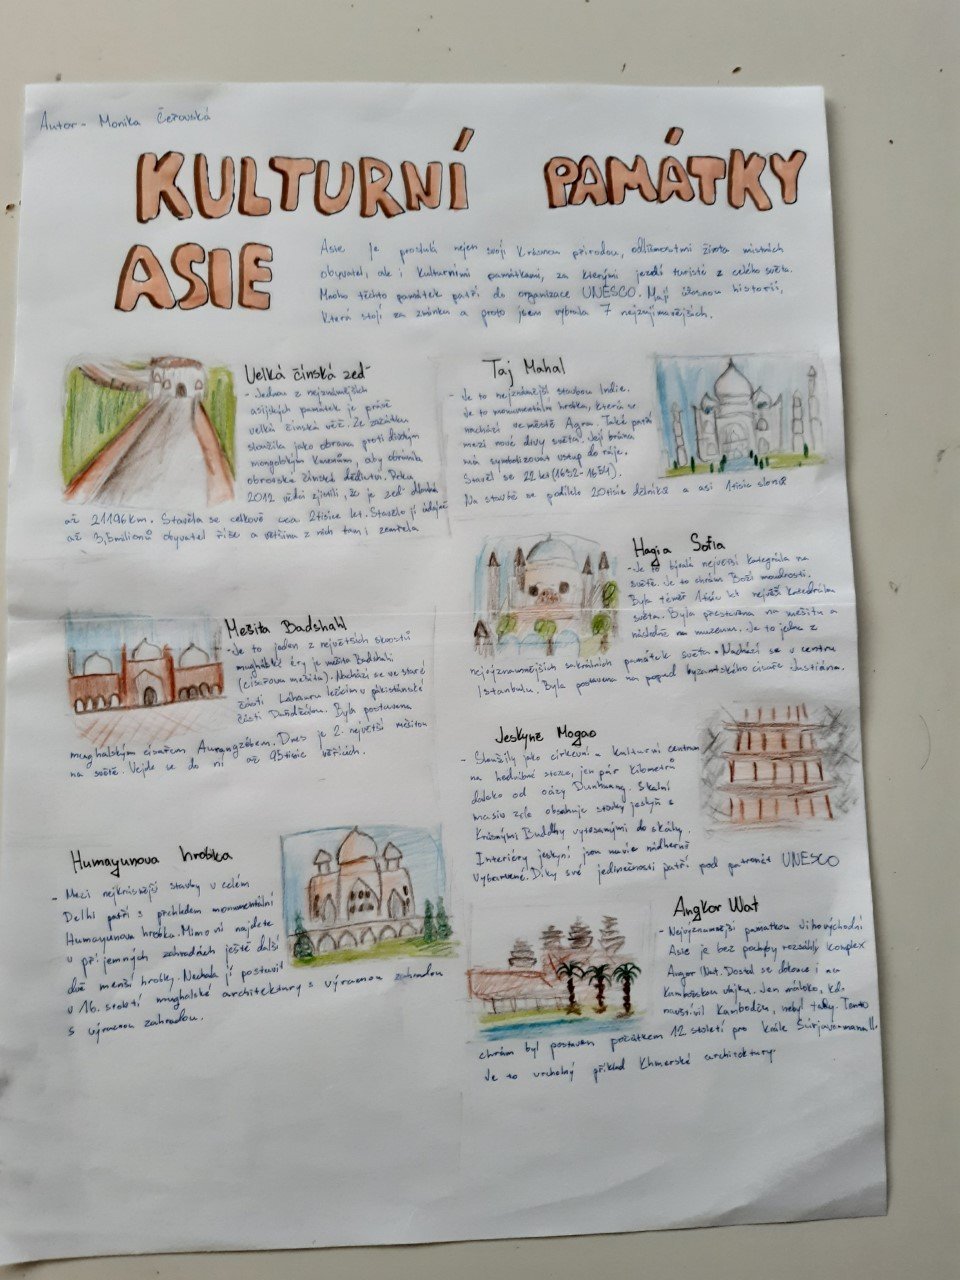 Autor - Monika Čeřovská
KULTURNÍ PAMÁTKY
ASIE
Asie je proslulá nejen svojí krásnou přírodou, odlišnostmi života místních
obyvatel, ale i kulturními památkami, za kterými jezdí turisté z celého světa.
Mnoho těchto památek patří do organizace UNESCO. Mají úžasnou historii,
která stojí za zmínku a proto jsem vybrala 7 nejzajímavějších.
Velká čínská zeď
- Jednou z nejznámějších
asijských památek je právě
velká čínská věč. Ze začátku
sloužila jako obrana proti divokým
mongolským kmenům, aby obránila
obrovské čínské dědictví. Roku
2012 vědci zjistili, že je zeď dlouhá
až 21196km. Stavěla se celkově cca 2tisíce let. Stavělo jí údajně
až 3,5milionů obyvatel říše a většina z nich tam i zemřela
Taj Mahal
- Je to nejznámější stavbou Indie.
Je to monumentální hrobka, která se
nachází ve městě Agra. Také patří
mezi nové divy světa. Její brána
má symbolizovat vstup do ráje.
Stavěl se 22 let (1632-1654).
Na stavbě se podílelo 20tisíc dělníků a asi 1tisíc slonů
Hagia Sofia
- Je to bývalá největší katedrála na
světě. Je to chrám Boží moudrosti.
Byla téměř 1tisíc let největší katedrálou
světa. Byla přestavěna na mešitu a
následně na muzeum. Je to jedna z
nejvýznamnějších sakrálních památek světa. Nachází se v centru
Istanbulu. Byla postavena na popud byzantského císaře Justiána.
Mešita Badshahi
- Je to jeden z největších skvostů
mughalské éry je mešita Badshahi
(císařova mešita). Nachází se ve staré
části Láhauru ležícím v pákistánské
části Paňdžábu. Byla postavena
mughalským císařem Aurangzébem. Dnes je 2. největší mešitou
na světě. Vejde se do ní až 95tisíc věřících.
Jeskyně Mogao
- Sloužily jako církevní a kulturní centrum
na hedvábné stezce, jen pár kilometrů
daleko od oázy Dunhuang. Skalní
masiv zde obsahuje stovky jeskyň s
krásnými Buddhy vytesanými do skály.
Interiéry jeskyní jsou navíc nádherně
vybarvené. Díky své jedinečnosti patří pod patronát UNESCO
Humayunova hrobka
- Mezi nejkrásnější stavby v celém
Delhi patří s přehledem monumentální
Humayunova hrobka. Mimo ní najdete
v příjemných zahradách ještě další
dvě menší hrobky. Nechala jí postavit
v 16. století mughalské architektury s výraznou zahradou
s výraznou zahradou.
Angkor Wat
- Nejvýznamnější památkou Jihovýchodní
Asie je bez pochyby rozsáhlý komplex
Angor Wat. Dostal se dokonce i na
Kambodžskou vlajku. Jen málokdo, kdo
navštívil Kambodžu, nebyl taky. Tento
chrám byl postaven počátkem 12. století pro krále Súrjavarmana II.
Je to vrcholný příklad Khmerské architektury.